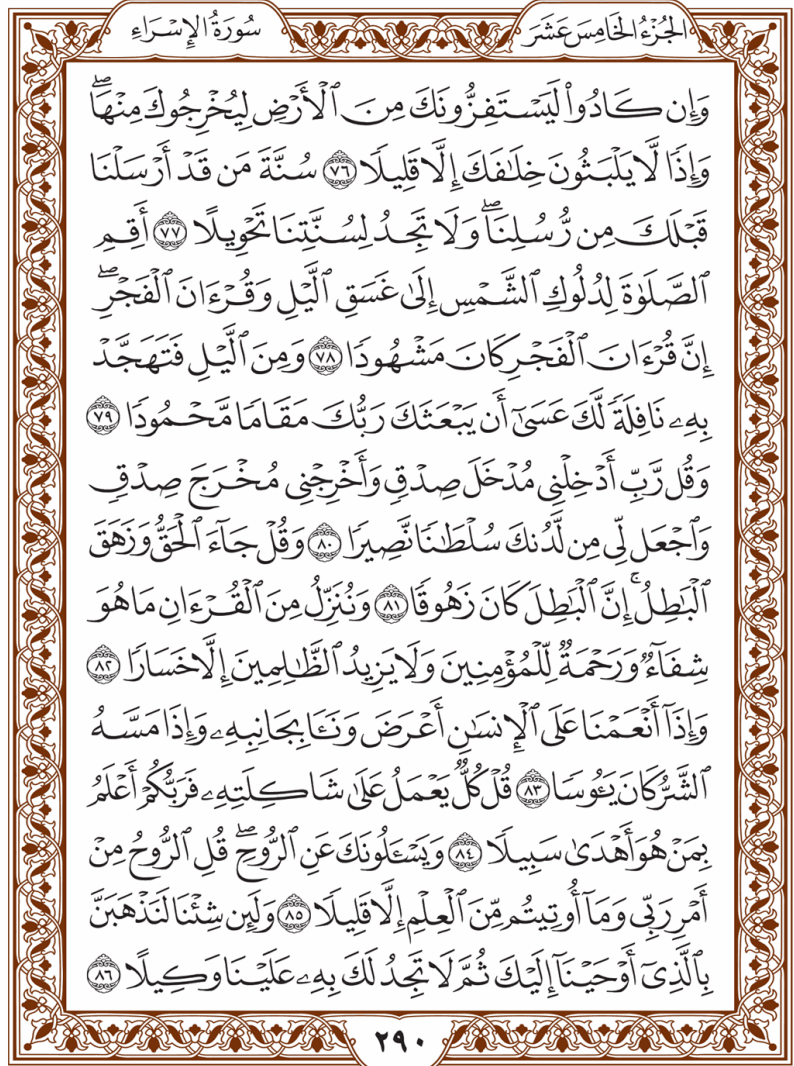 الجُزْءُ الخَامِسَ عَشَرَ
سُورَةُ الإِسْرَاءِ
وَإِن كَادُواْ لَيَسْتَفِزُّونَكَ مِنَ ٱلْأَرْضِ لِيُخْرِجُوكَ مِنْهَاۖ
وَإِذٗا لَّا يَلْبَثُونَ خِلَٰفَكَ إِلَّا قَلِيلٗا ٧٦ سُنَّةَ مَن قَدۡ أَرۡسَلۡنَا
قَبۡلَكَ مِن رُّسُلِنَاۖ وَلَا تَجِدُ لِسُنَّتِنَا تَحۡوِيلًا ٧٧ أَقِمِ
ٱلصَّلَوٰةَ لِدُلُوكِ ٱلشَّمۡسِ إِلَىٰ غَسَقِ ٱلَّيۡلِ وَقُرۡءَانَ ٱلۡفَجۡرِۖ
إِنَّ قُرۡءَانَ ٱلۡفَجۡرِ كَانَ مَشۡهُودٗا ٧٨ وَمِنَ ٱلَّيۡلِ فَتَهَجَّدۡ
بِهِۦ نَافِلَةٗ لَّكَ عَسَىٰٓ أَن يَبۡعَثَكَ رَبُّكَ مَقَامٗا مَّحۡمُودٗا ٧٩
وَقُل رَّبِّ أَدۡخِلۡنِي مُدۡخَلَ صِدۡقٖ وَأَخۡرِجۡنِي مُخۡرَجَ صِدۡقٖ
وَٱجۡعَل لِّي مِن لَّدُنكَ سُلۡطَٰنٗا نَّصِيرٗا ٨٠ وَقُلۡ جَآءَ ٱلۡحَقُّ وَزَهَقَ
ٱلۡبَٰطِلُۚ إِنَّ ٱلۡبَٰطِلَ كَانَ زَهُوقٗا ٨١ وَنُنَزِّلُ مِنَ ٱلۡقُرۡءَانِ مَا هُوَ
شِفَآءٞ وَرَحۡمَةٞ لِّلۡمُؤۡمِنِينَ وَلَا يَزِيدُ ٱلظَّٰلِمِينَ إِلَّا خَسَارٗا ٨٢
وَإِذَآ أَنۡعَمۡنَا عَلَى ٱلۡإِنسَٰنِ أَعۡرَضَ وَنَـَٔا بِجَانِبِهِۦ وَإِذَا مَسَّهُ
ٱلشَّرُّ كَانَ يَـُٔوسٗا ٨٣ قُلۡ كُلّٞ يَعۡمَلُ عَلَىٰ شَاكِلَتِهِۦ فَرَبُّكُمۡ أَعۡلَمُ
بِمَنۡ هُوَ أَهۡدَىٰ سَبِيلٗا ٨٤ وَيَسۡـَٔلُونَكَ عَنِ ٱلرُّوحِۖ قُلِ ٱلرُّوحُ مِنۡ
أَمۡرِ رَبِّي وَمَآ أُوتِيتُم مِّنَ ٱلۡعِلۡمِ إِلَّا قَلِيلٗا ٨٥ وَلَئِن شِئۡنَا لَنَذۡهَبَنَّ
بِٱلَّذِيٓ أَوۡحَيۡنَآ إِلَيۡكَ ثُمَّ لَا تَجِدُ لَكَ بِهِۦ عَلَيۡنَا وَكِيلًا ٨٦
٢٩٠